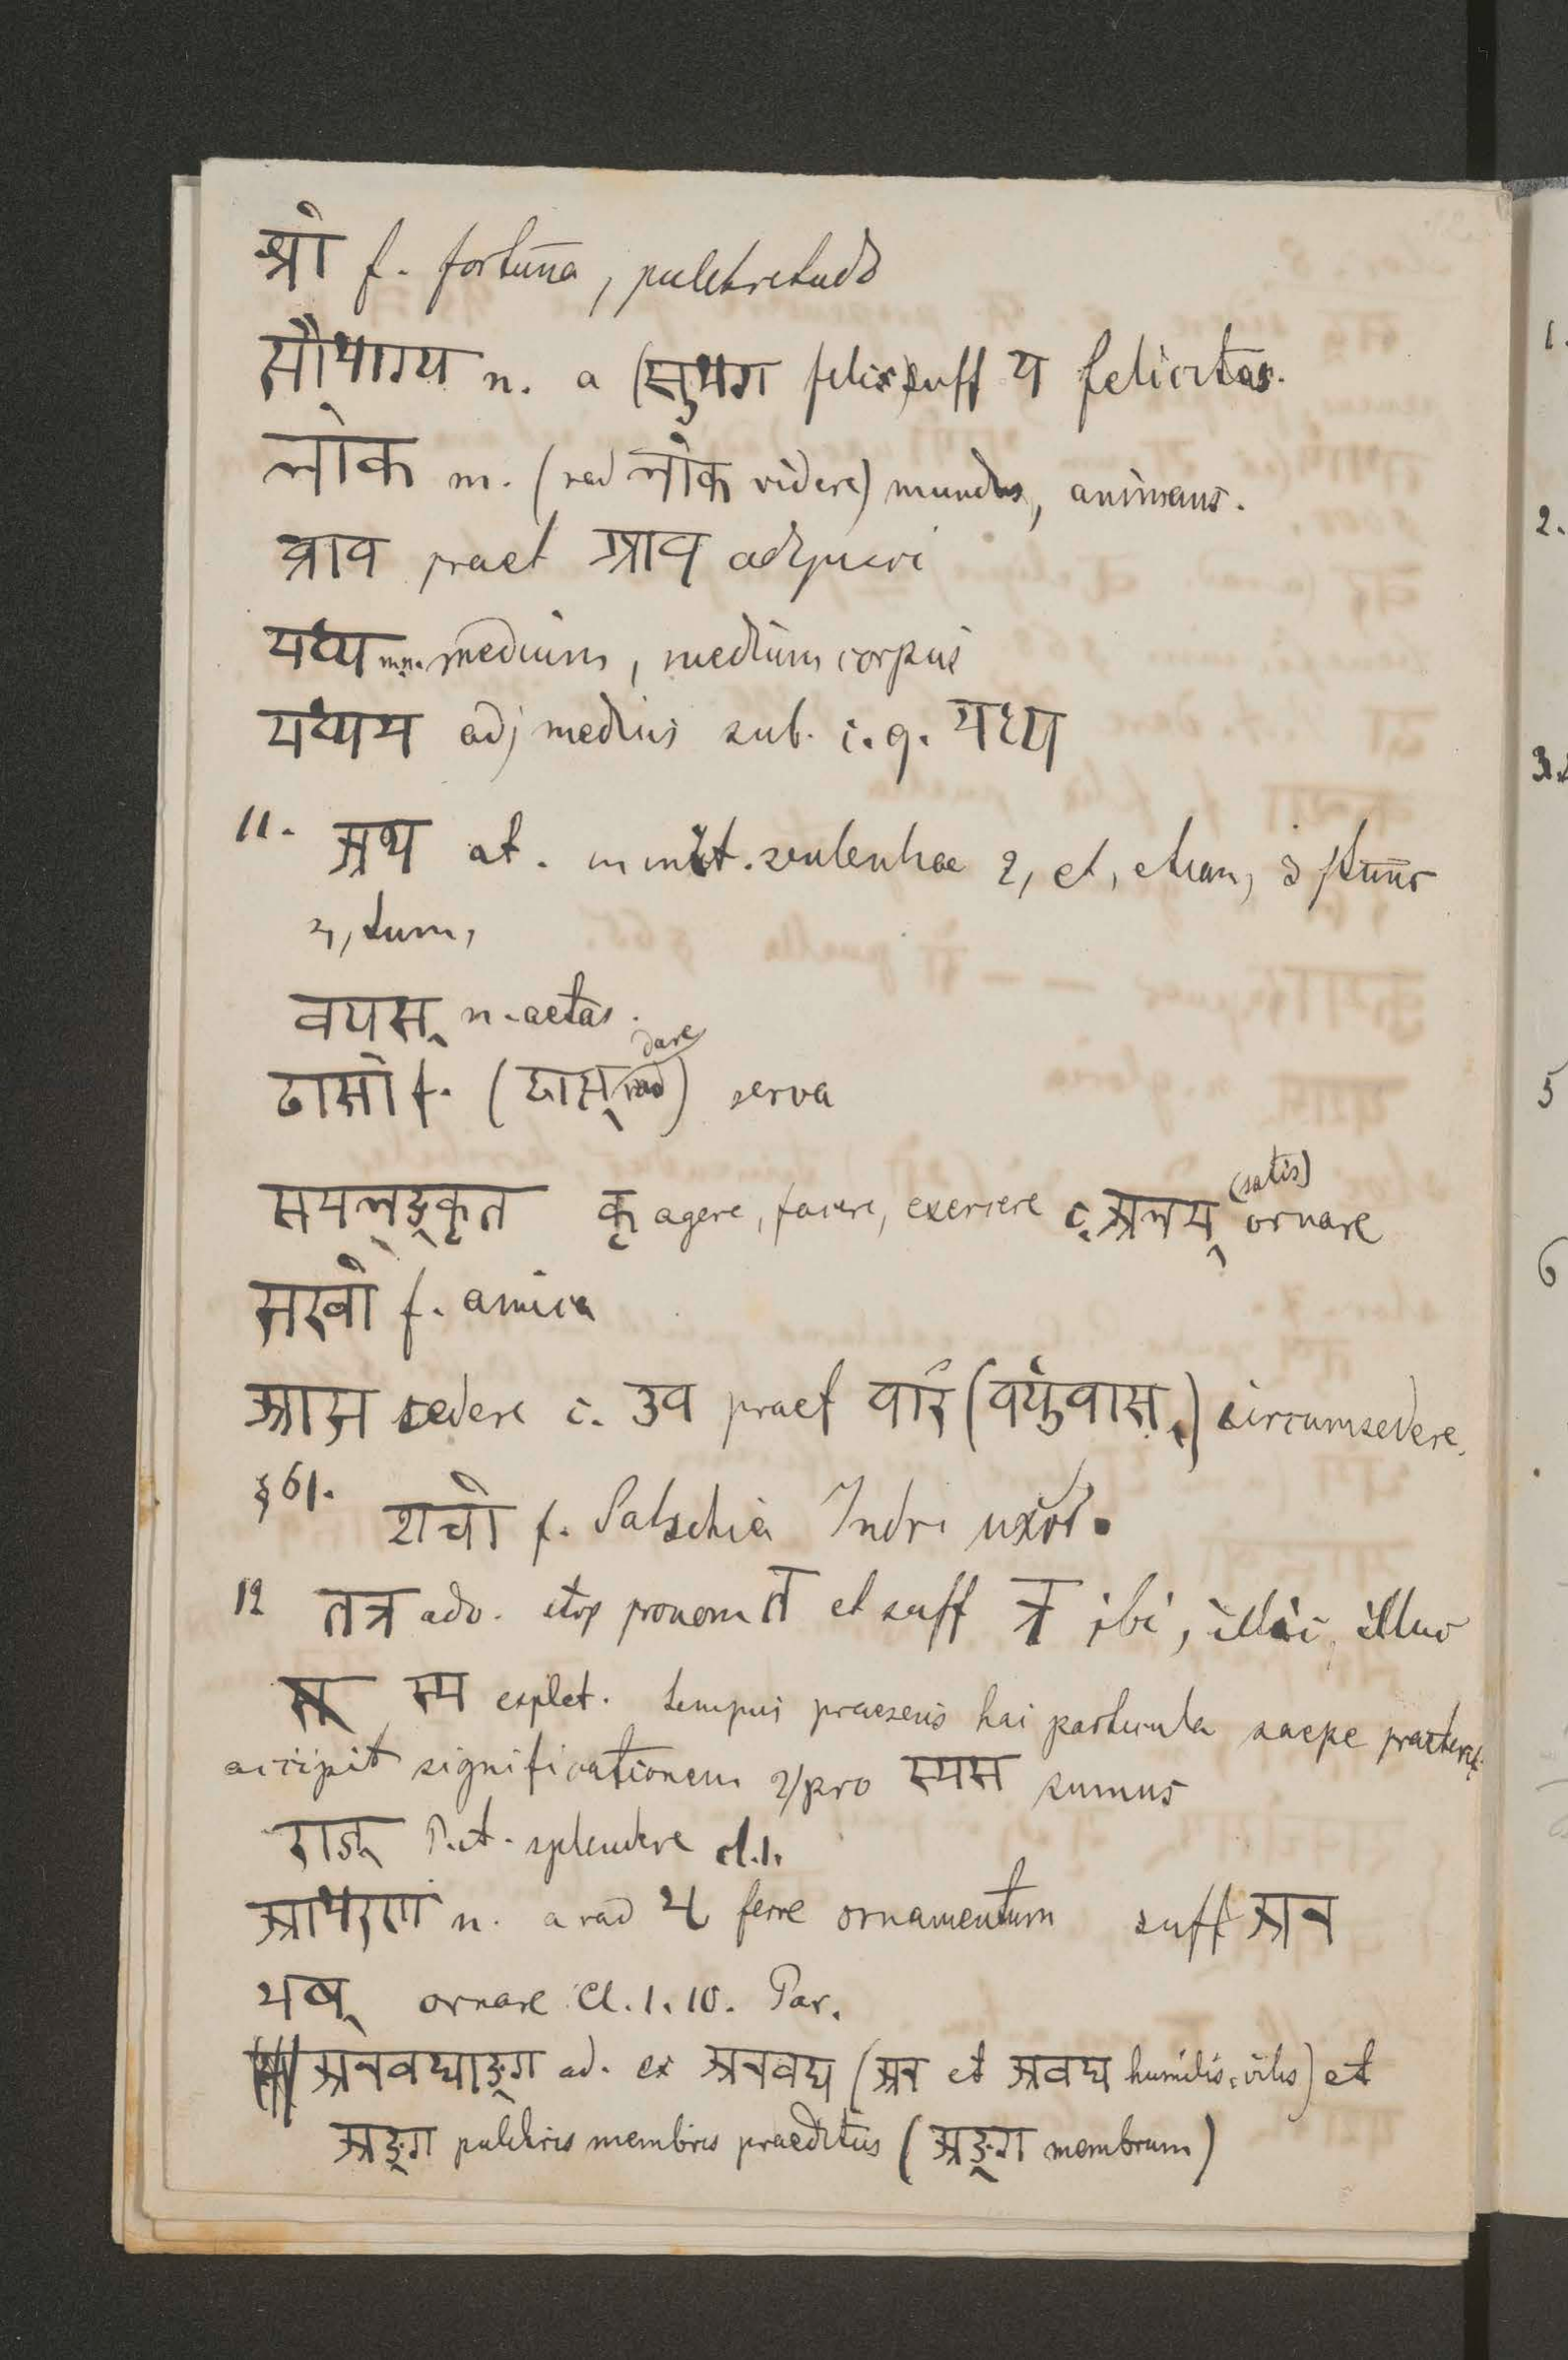 श्री f. fortuna, pulchritudo
सौभाग्य n. a (सुभग felix) suff य felicitas.
लोक m. (rad लोक videre) mundus, animans.
प्राप praet आप adipisci
मध्य mn. medium, medium corpus
मध्यम adj medius sub. i.q. मध्य
11. अथ at. in init. sententiae 2, et, etiam, 3
4, tum,
वयस् n. aetas.
दासी f. (दास् rad dare) serva
समलङ्कृत कृ agere, facere, exercere c. अलम् (satis) ornare
सखी f. amica
आस sedere c. उप praef परि (पर्युपास्) circumsedere.
§ 61. शची f. Satschia Indri uxor.
12 तत्र adv. stirp pronom त et suff त्र ibi, illic, illuc
स्म explet. tempus praesens hac particula saepe praeterit.
accipit significationem 2/ pro स्मस sumus
राज् P. et. splendere cl. 1.
आभरण n. a rad भृ ferre ornamentum suff अन
भष् ornare Cl. 1. 10. Par.
अनवद्याङ्ग ad. ex अनवद्य (अन et अवद्य humilis, vilis) et
अङ्ग pulchris membris praeditus (अङ्ग membrum)
1.
2.
3.
5
6